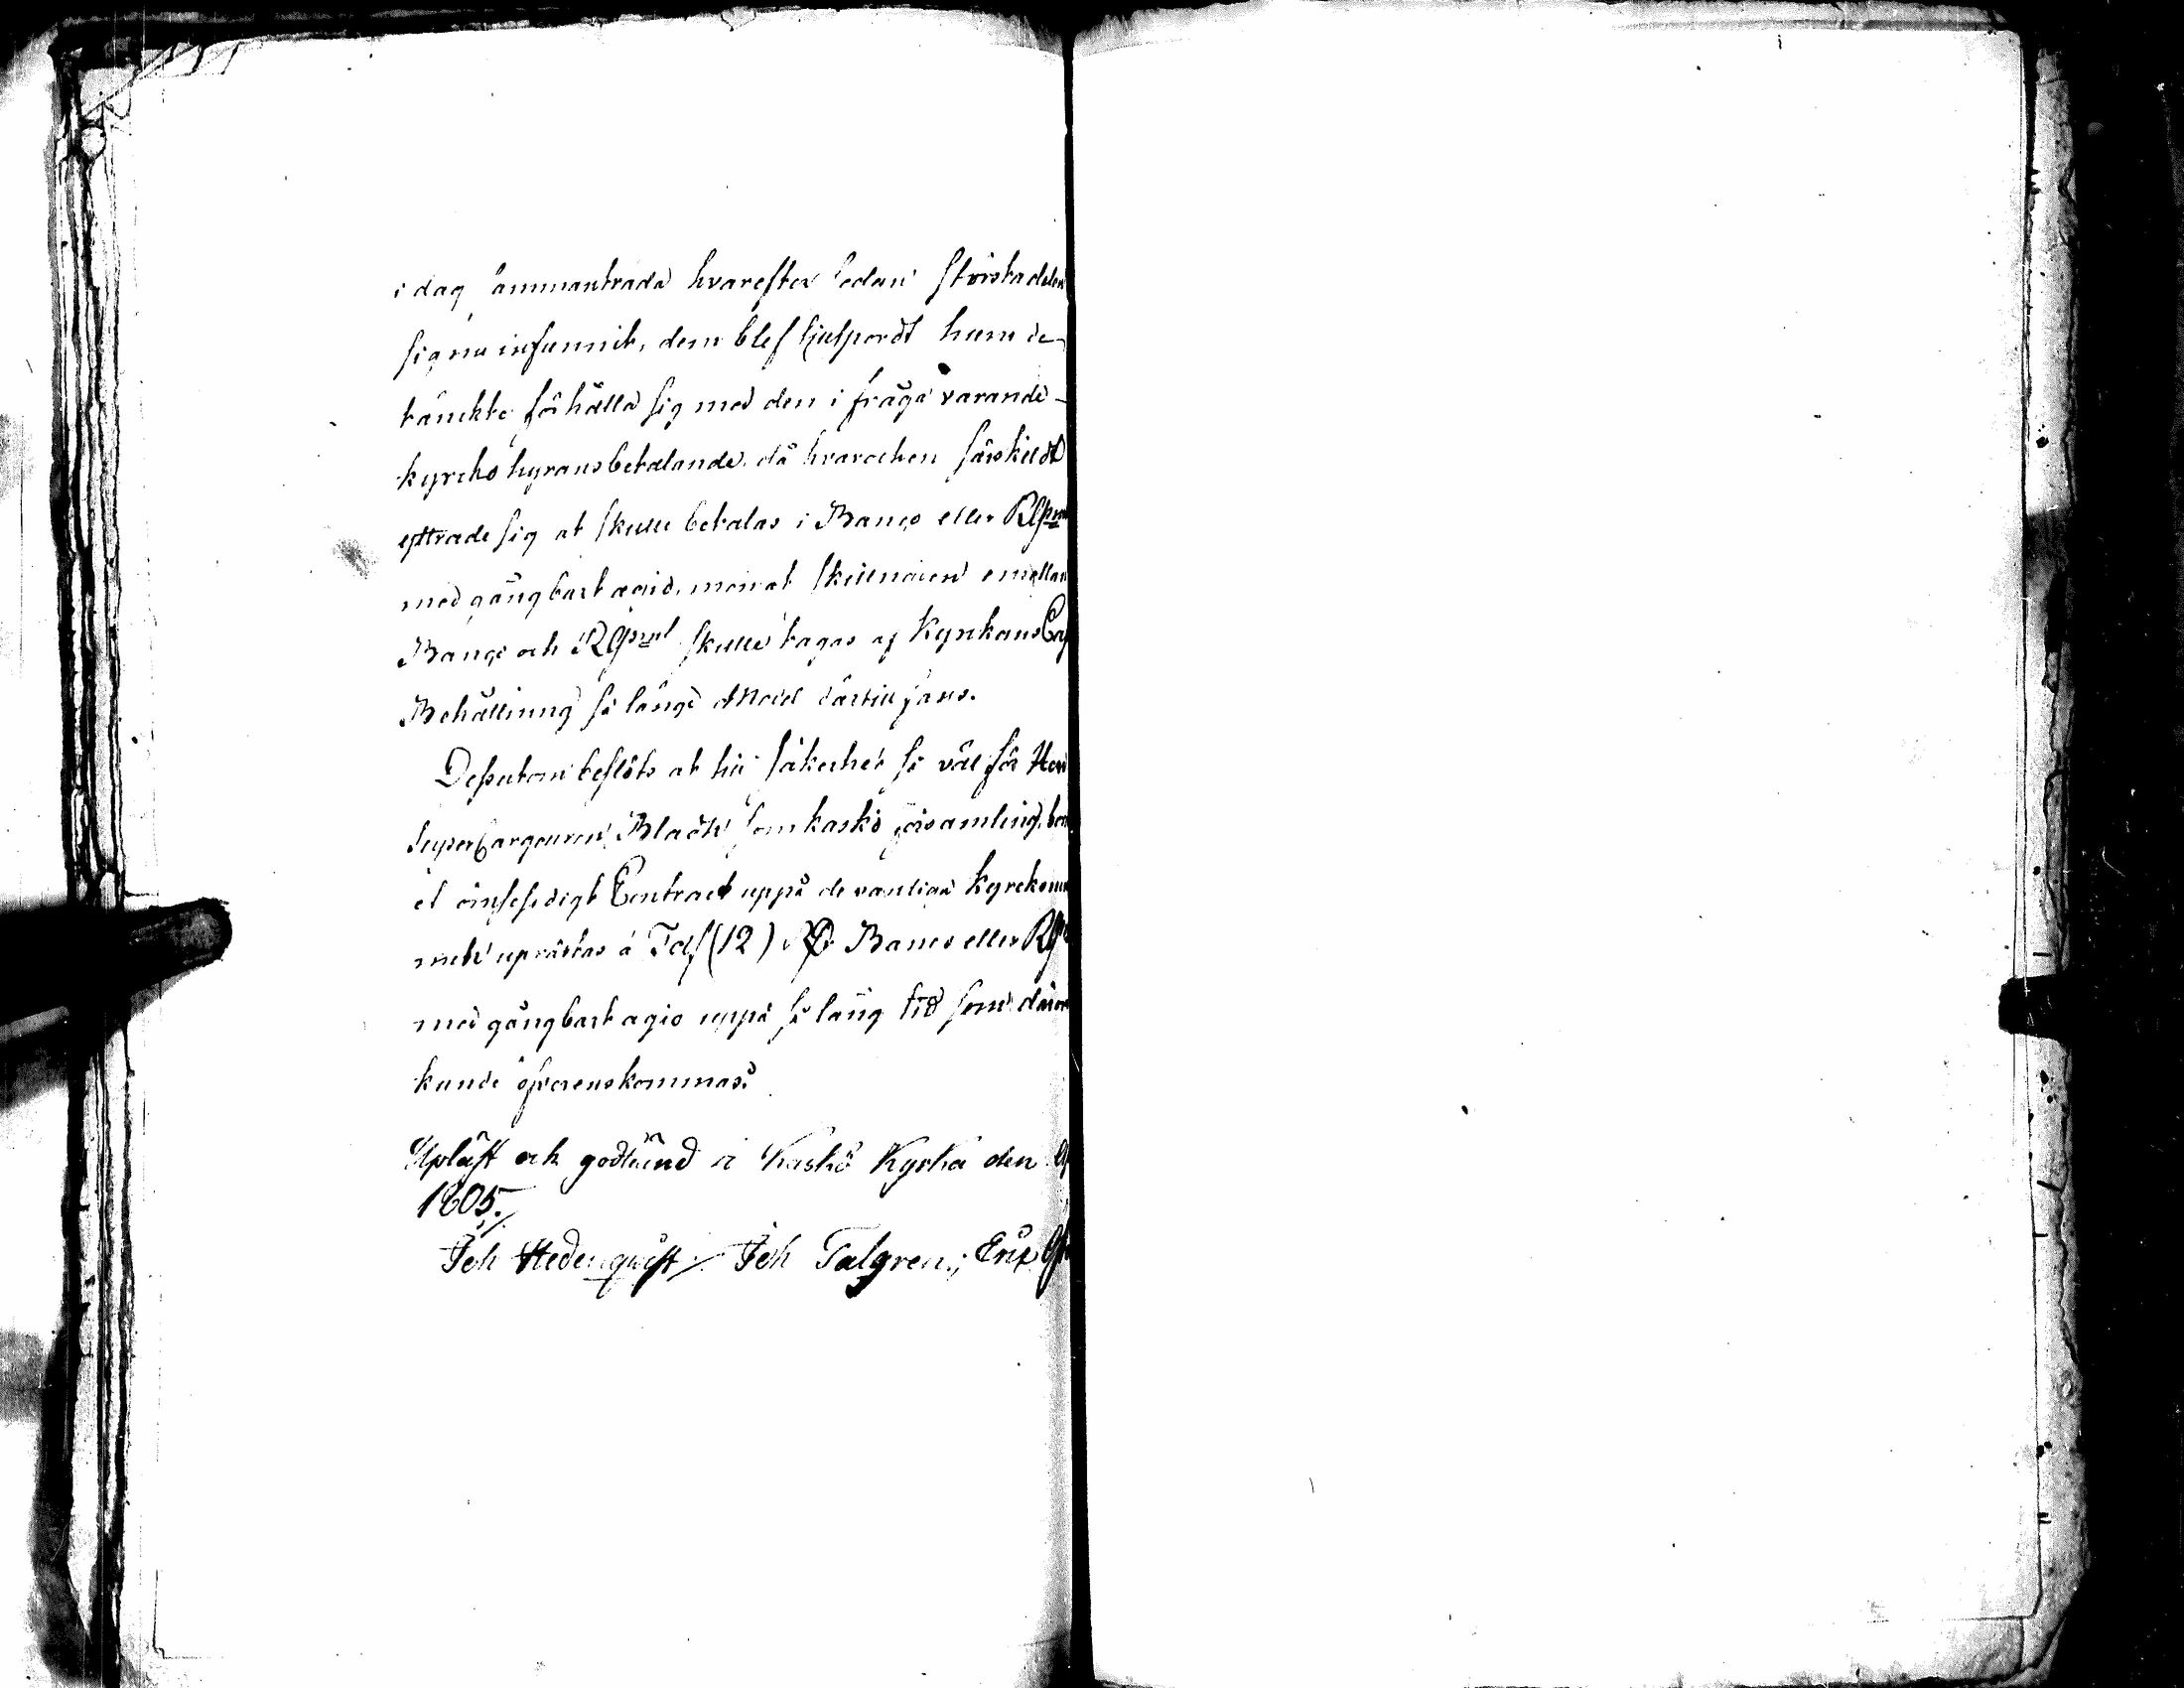 i dag ammanträda hvarefter sedan störstadelen
sig nu infunnit, dem blef tilspordt hum de
tänckte förhålla sig med den i fråga varande
kyrcko hyrans betalande. då hvar och en särskildt
yttrade sig at skulle betalas i Banco eller
med gångbart agio, men at skillnaden emellan
Banco och skulle tagas af Kyrkans
Behållning så länge därtill fans.
Dessutom beslöts at til säkerhet så väl för
SuperCargeuren Bladh som Kaskö församling,
et ömsesidigt Contract uppå de vanliga
uprättas á Tolf (12) RD Banco eller
med gångbart agio uppå så lång tid som
kunde öfverenskommas.
Upläst och godkänd i Kaskö Kyrka den
1805./.
Joh Hedenquist / Joh Talgren.; Eric